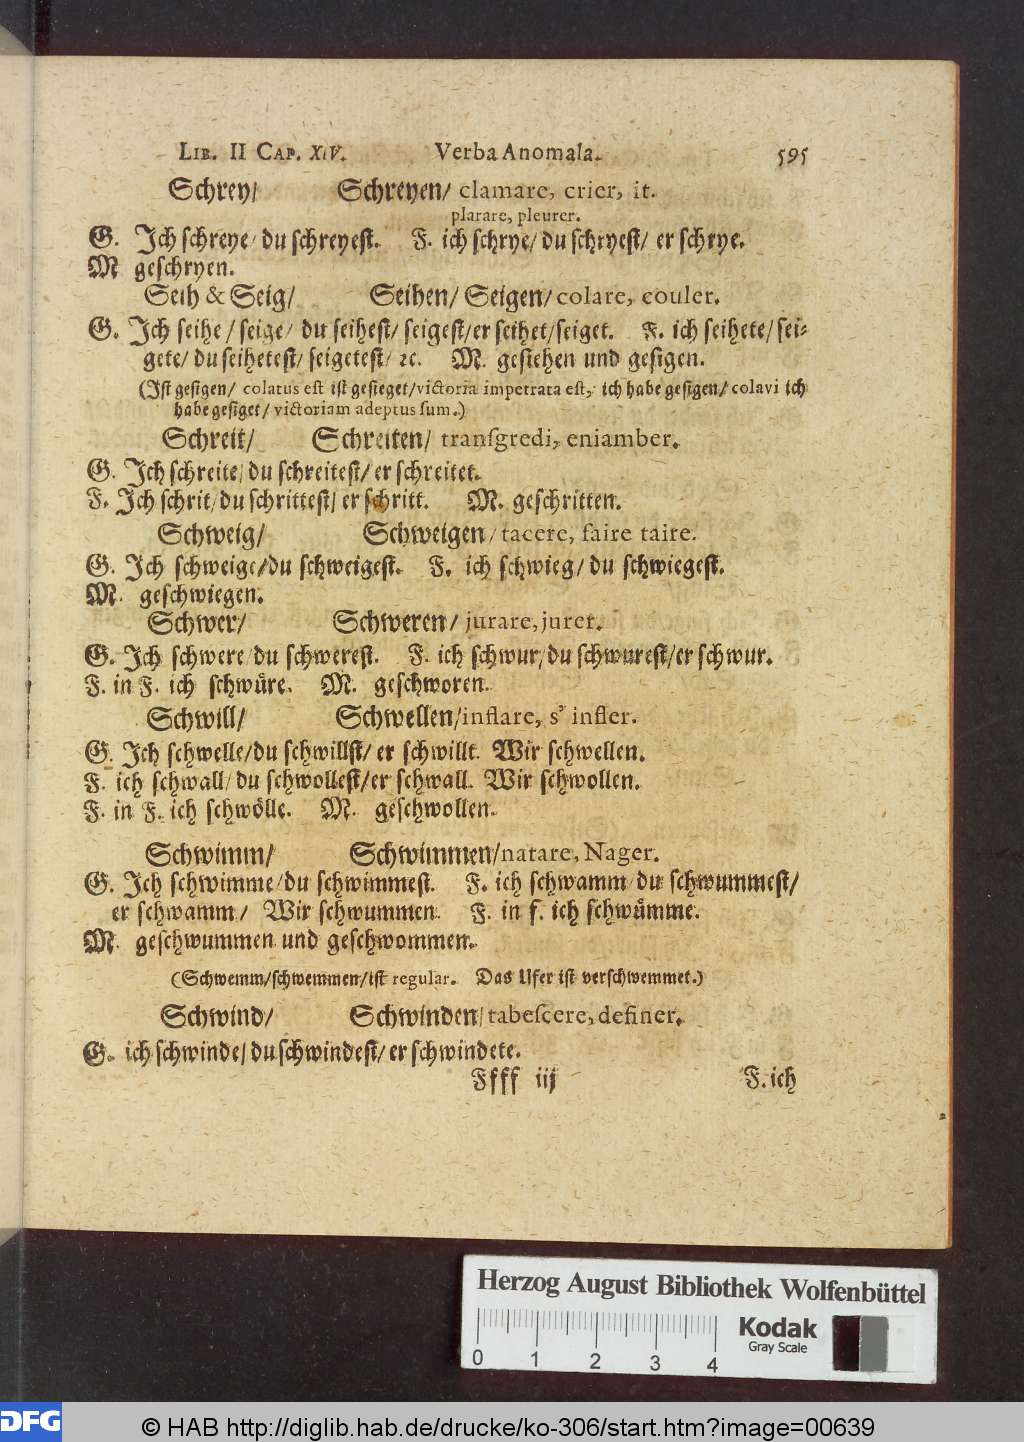 Lib. II Cap. XIV. Verba Anomala. 595
Schrey/ Schreyen/ clamare, crier, it.
plarare, pleurer.
G. Ich schreye/ du schreyest. F. ich schrye/ du schryest/ er schrye.
M geschryen.
Seih & Seig/ Seihen/ Seigen/ colare, couler.
G. Ich seihe/ seige/ du seihest/ seigest/ er seihet/ seiget. F. ich seihete/ sei-
gete/ du seihetest/ seigetest/ ꝛc. M. gesiehen und gesigen.
(Ist gesigen/ colatus est ist gesieget/ victoria impetrata est, ich habe gesigen/ colavi ich
habe gesiget/ victoriam adeptus sum.)
Schreit/ Schreiten/ transgredi, eniamber.
G. Ich schreite/ du schreitest/ er schreitet.
F. Ich schrit/ du schrittest/ er schritt. M. geschritten.
Schweig/ Schweigen/ tacere, faire taire.
G. Ich schweige/ du schweigest. F. ich schwieg/ du schwiegest.
M. geschwiegen.
Schwer/ Schweren/ jurare, juret.
G. Ich schwere/ du schwerest. F. ich schwur/ du schwurest/ er schwur.
F. in F. ich schwüre. M. geschworen.
Schwill/ Schwellen/ inflare, s' infler.
G. Ich schwelle/ du schwillst/ er schwillt. Wir schwellen.
F. ich schwall/ du schwollest/ er schwall. Wir schwollen.
F. in F. ich schwölle. M. geschwollen.
Schwimm/ Schwimmen/ natare, Nager.
G. Ich schwimme/ du schwimmest. F. ich schwamm/ du schwummest/
er schwamm/ Wir schwummen. F. in f. ich schwümme.
M. geschwummen und geschwommen.
(Schwemm/ schwemmen/ ist regular. Das Ufer ist verschwemmet.)
Schwind/ Schwinden/ tabescere, definer.
G. ich schwinde/ du schwindest/ er schwindete.
Ffff iij F. ich
Herzog August Bibliothek Wolfenbüttel
0 1 2 3 4
Kodak
Gray Scale
DFG
© HAB http://diglib.hab.de/drucke/ko-306/start.htm?image=00639